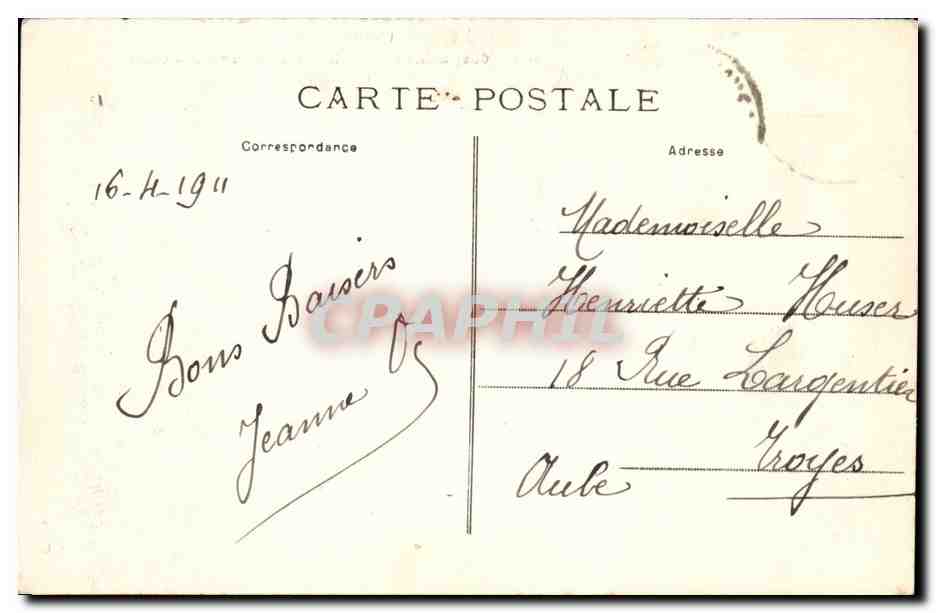 CARTE POSTALE
Correspondance
Adresse
16-4-1911
Bons Baisers
Jeanne
Mademoiselle
Henriette Huser
18 Rue Largentier
Troyes
Aube
CPAPHIL